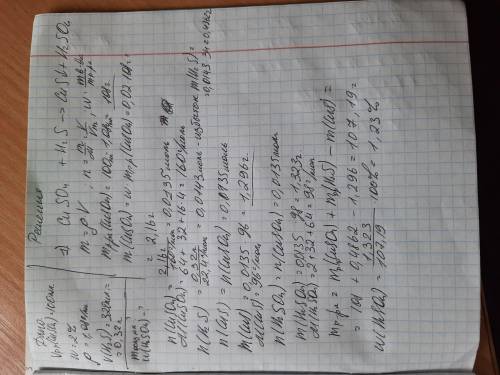 Дано
V(CuSO₄)=100мл
w=2%
ρ=1,08г/мл
V(H₂S)=320мл=
=0,32л
w(H₂SO₄)-?
Решение
1) CuSO₄ + H₂S → CuS↓ + H₂SO₄
m=ρV
mр-ра(CuSO₄)=100мл·1,08г/мл=108г
m(CuSO₄)=w·mр-ра(CuSO₄)=0,02·108г=
=2,16г
n(CuSO₄)=2,16г/160г/моль=0,0135моль
M(CuSO₄)=64+32+16·4=160г/моль
n(H₂S)=0,32л/22,4л/моль=0,0143моль - избыток m(H₂S)=
=0,0143·34=0,4862
n(CuS)=n(CuSO₄)=0,0135моль
m(CuS)=0,0135·96=1,296г
M(CuS)=96г/моль
n(H₂SO₄)=n(CuSO₄)=0,0135моль
m(H₂SO₄)=0,0135·98=1,323г
M(H₂SO₄)=2+32+64=98г/моль
mр-ра=mр-ра(CuSO₄)+m(H₂S)-m(CuS)=
=108+0,4862-1,296=107,19г
w(H₂SO₄)=1,323/107,19·100%=1,23%